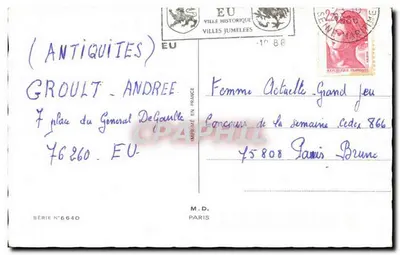 EU
VILLE HISTORIQUE
VILLES JUMELEES
EU
(ANTIQUITES)
GROULT - ANDREE
7 place du General DeGaulle
76260. EU
Femme Actuelle - Grand Jeu
Concours de la semaine Cedex 866
75808 Paris Brune
IMPRIMÉ EN FRANCE
SÉRIE N° 6640
M.D.
PARIS